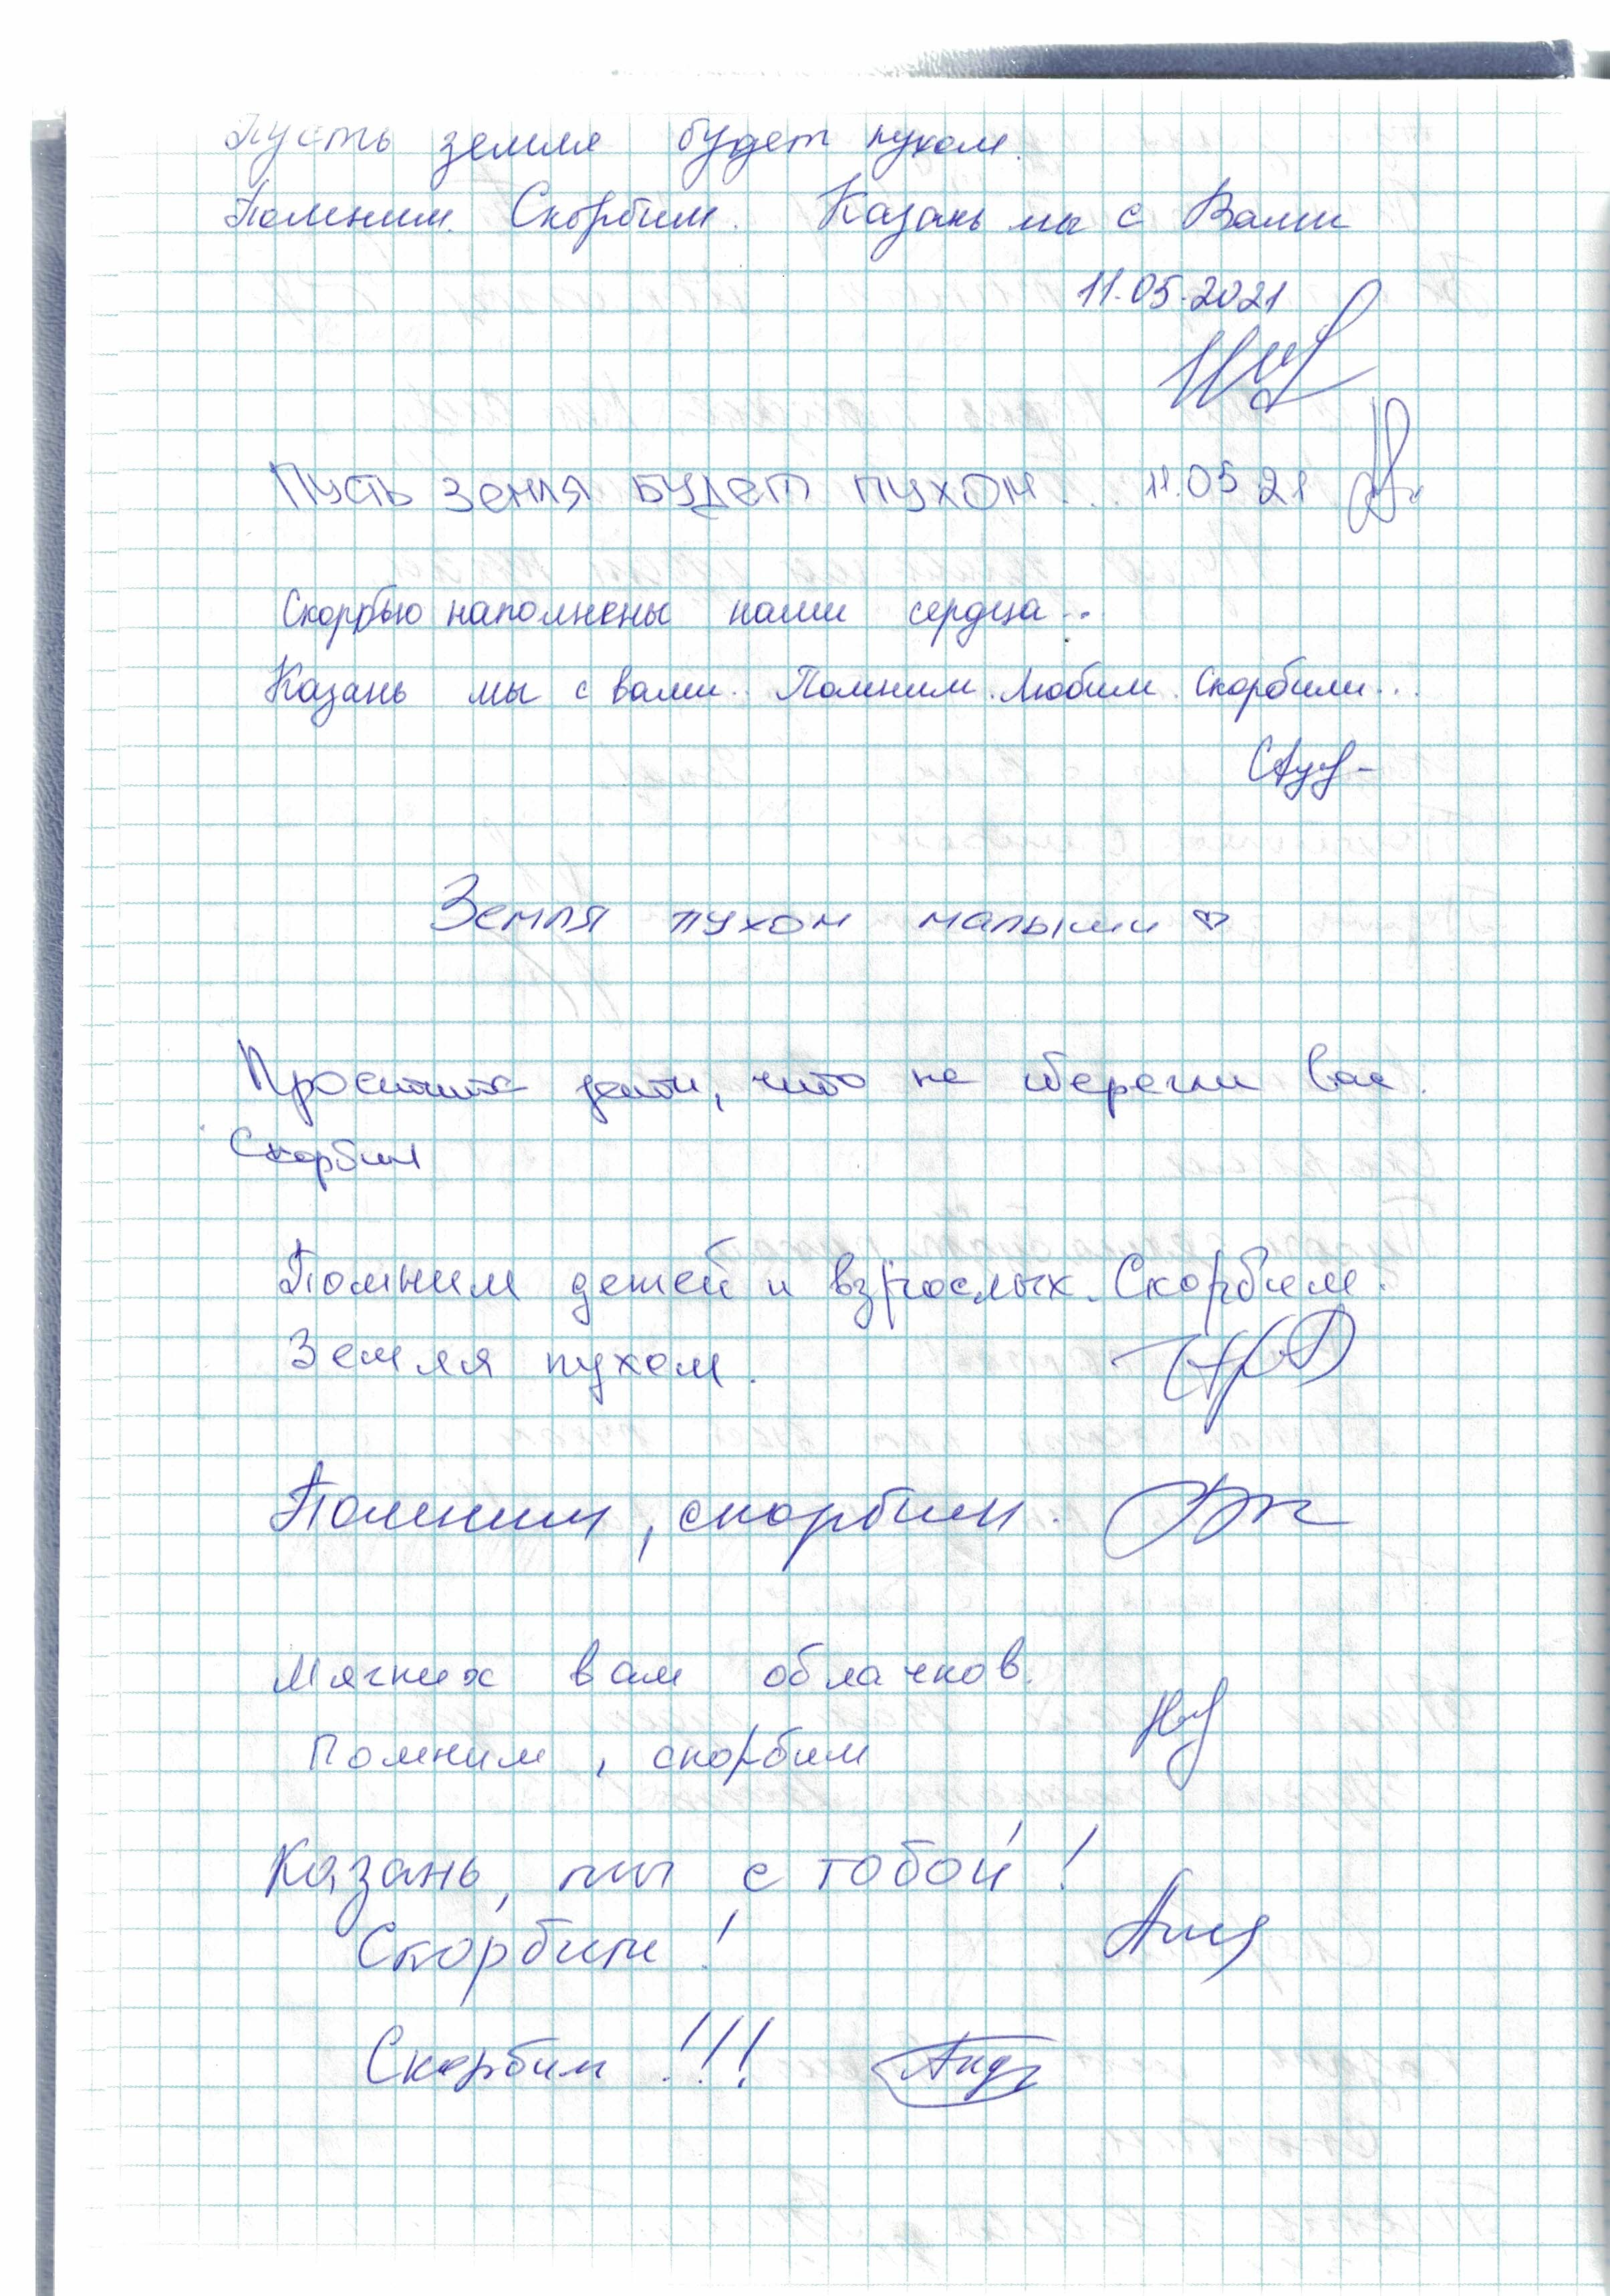 Пусть земля будет пухом.
Помним. Скорбим. Казань мы с Вами
11.05.2021
Пусть земля будет пухом... 11.05.21
Скорбью наполнены наши сердца...
Казань мы с вами.. Помним. Любим. Скорбим...
Земля пухом малыши ♡
Простите дети, что не сберегли вас.
Скорбим
Помним детей и взрослых. Скорбим.
Земля пухом.
Помним, скорбим.
Мягких вам облачков.
Помним, скорбим
Казань, мы с тобой!
Скорбим!
Скорбим!!!